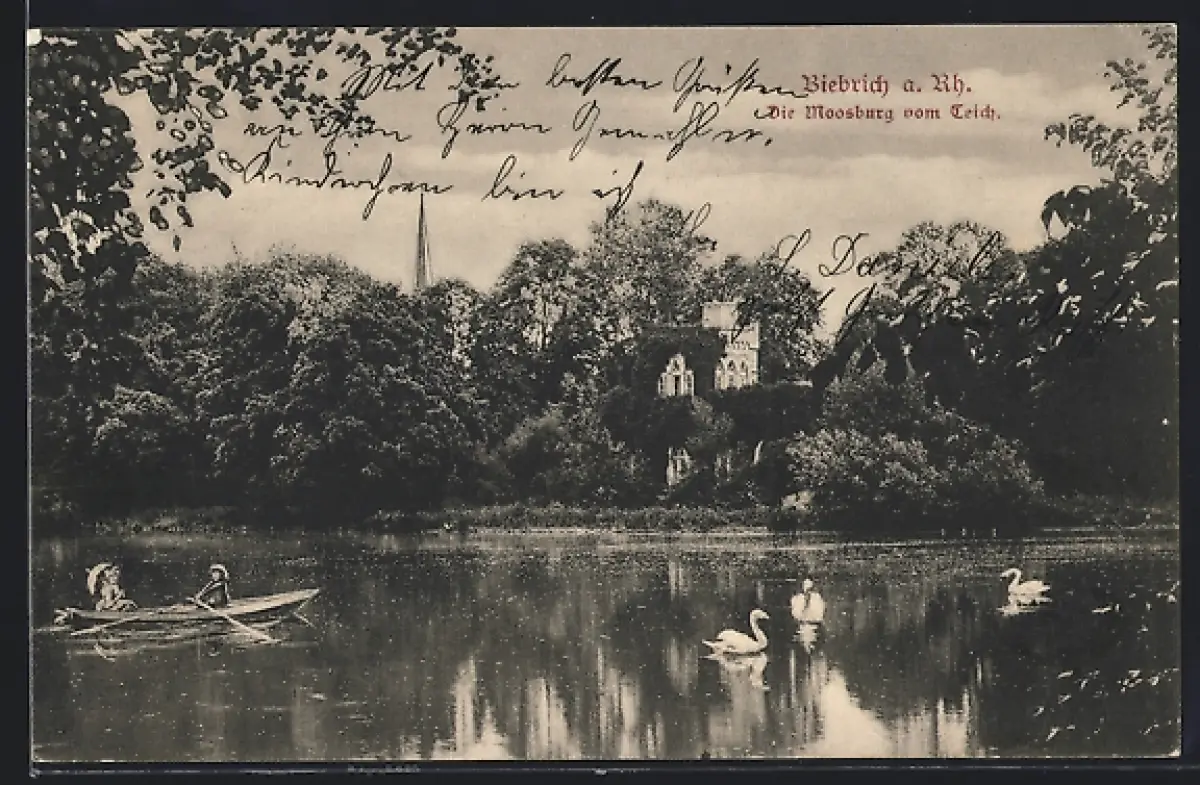 Biebrich a. Rh.
Die Moosburg vom Teich.
Mit den besten Grüßen
an Ihren Herrn Gemahl u.
Kinderchen bin ich